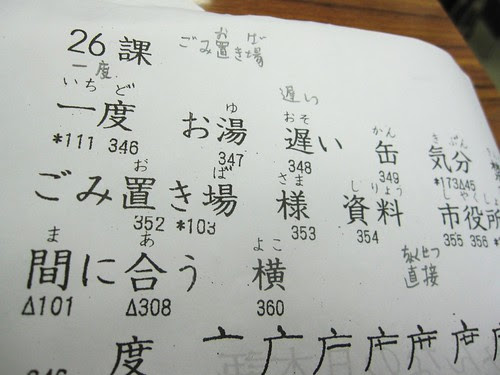 26 課 ごみ置き場
お ば
一度
遅い
いちど ゆ おそ かん きぶん
一度 お湯 遅い 缶 気分
*111 346 347 348 349 *173 45
お ば さま しりょう しやくしょ
ごみ置き場 様 資料 市役所
352 *103 353 354 355 356
ま あ よこ
間に合う 横 直接
Δ101 Δ308 360
度